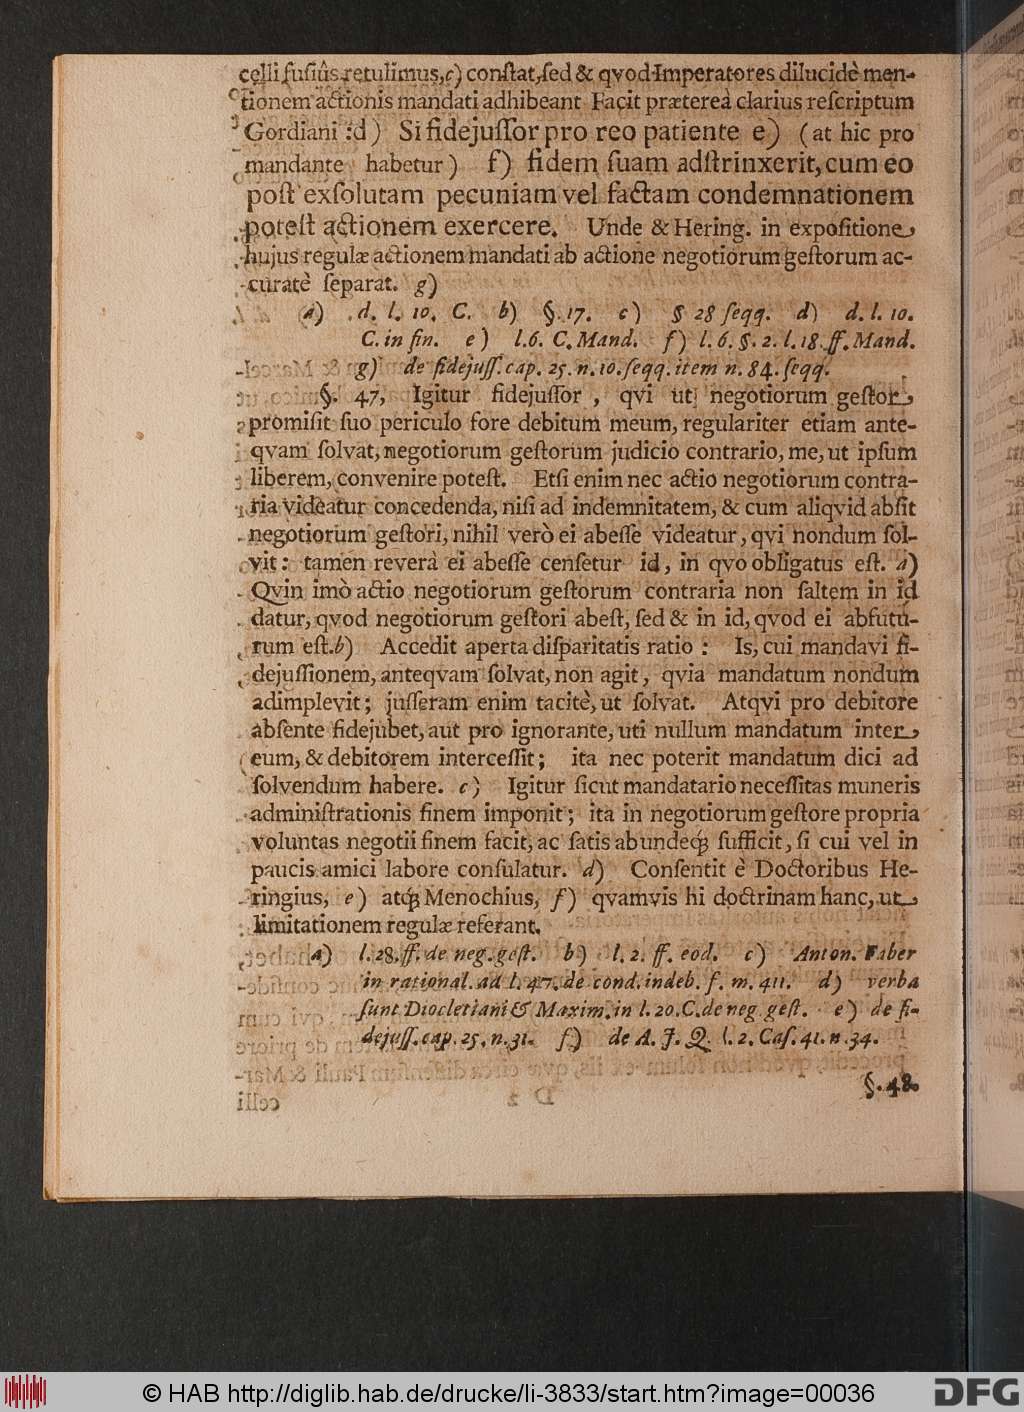 celli fusiùs retulimus, c) constat, sed & qvod Imperatores dilucidè men-
tionem actionis mandati adhibeant Facit prætereà clarius rescriptum
Gordiani: d) Si fidejussor pro reo patiente e) (at hic pro
mandante habetur) f) fidem suam adstrinxerit, cum eo
post exsolutam pecuniam vel factam condemnationem
potest actionem exercere. Unde & Hering. in expositione
hujus regulæ actionem mandati ab actione negotiorum gestorum ac-
curatè separat. g)
(a) d. l. 10. C. b) §. 17. c) § 28 seqq. d) d. l. 10.
C. in fin. e) l. 6. C. Mand. f) l. 6. §. 2. l. 18. ff. Mand.
g) de fidejuss. cap. 25. n. 10. seqq. item n. 84. seqq.
§. 47, Igitur fidejussor, qvi ut negotiorum gestor
promisit suo periculo fore debitum meum, regulariter etiam ante-
qvam solvat, negotiorum gestorum judicio contrario, me, ut ipsum
liberem, convenire potest. Etsi enim nec actio negotiorum contra-
ria videatur concedenda, nisi ad indemnitatem, & cum aliqvid absit
negotiorum gestori, nihil verò ei abesse videatur, qvi nondum sol-
vit: tamen reverà ei abesse censetur id, in qvo obligatus est. a)
Qvin imò actio negotiorum gestorum contraria non saltem in id
datur, qvod negotiorum gestori abest, sed & in id, qvod ei abfutu-
rum est. b) Accedit aperta disparitatis ratio: Is, cui mandavi fi-
dejussionem, anteqvam solvat, non agit, qvia mandatum nondum
adimplevit; jusseram enim tacitè, ut solvat. Atqvi pro debitore
absente fidejubet, aut pro ignorante, uti nullum mandatum inter
eum, & debitorem intercessit; ita nec poterit mandatum dici ad
solvendum habere. c) Igitur sicut mandatario necessitas muneris
administrationis finem imponit; ita in negotiorum gestore propria
voluntas negotii finem facit, ac satis abundeq́; sufficit, si cui vel in
paucis amici labore consulatur. d) Consentit è Doctoribus He-
ringius, e) atq́; Menochius, f) qvamvis hi doctrinam hanc, ut
limitationem regulæ referant.
(a) l. 28. ff. de neg. gest. b) l. 2. ff. eod. c) Anton. Faber
in rational. ad l. 47. de cond. indeb. f. m. 411. d) verba
sunt Diocletiani & Maxim. in l. 20. C. de neg gest. e) de fi-
dejuss. cap. 25. n. 31. f) de A. J. Q. l. 2. Cas. 41. n. 34.
§. 48.
© HAB http://diglib.hab.de/drucke/li-3833/start.htm?image=00036
DFG